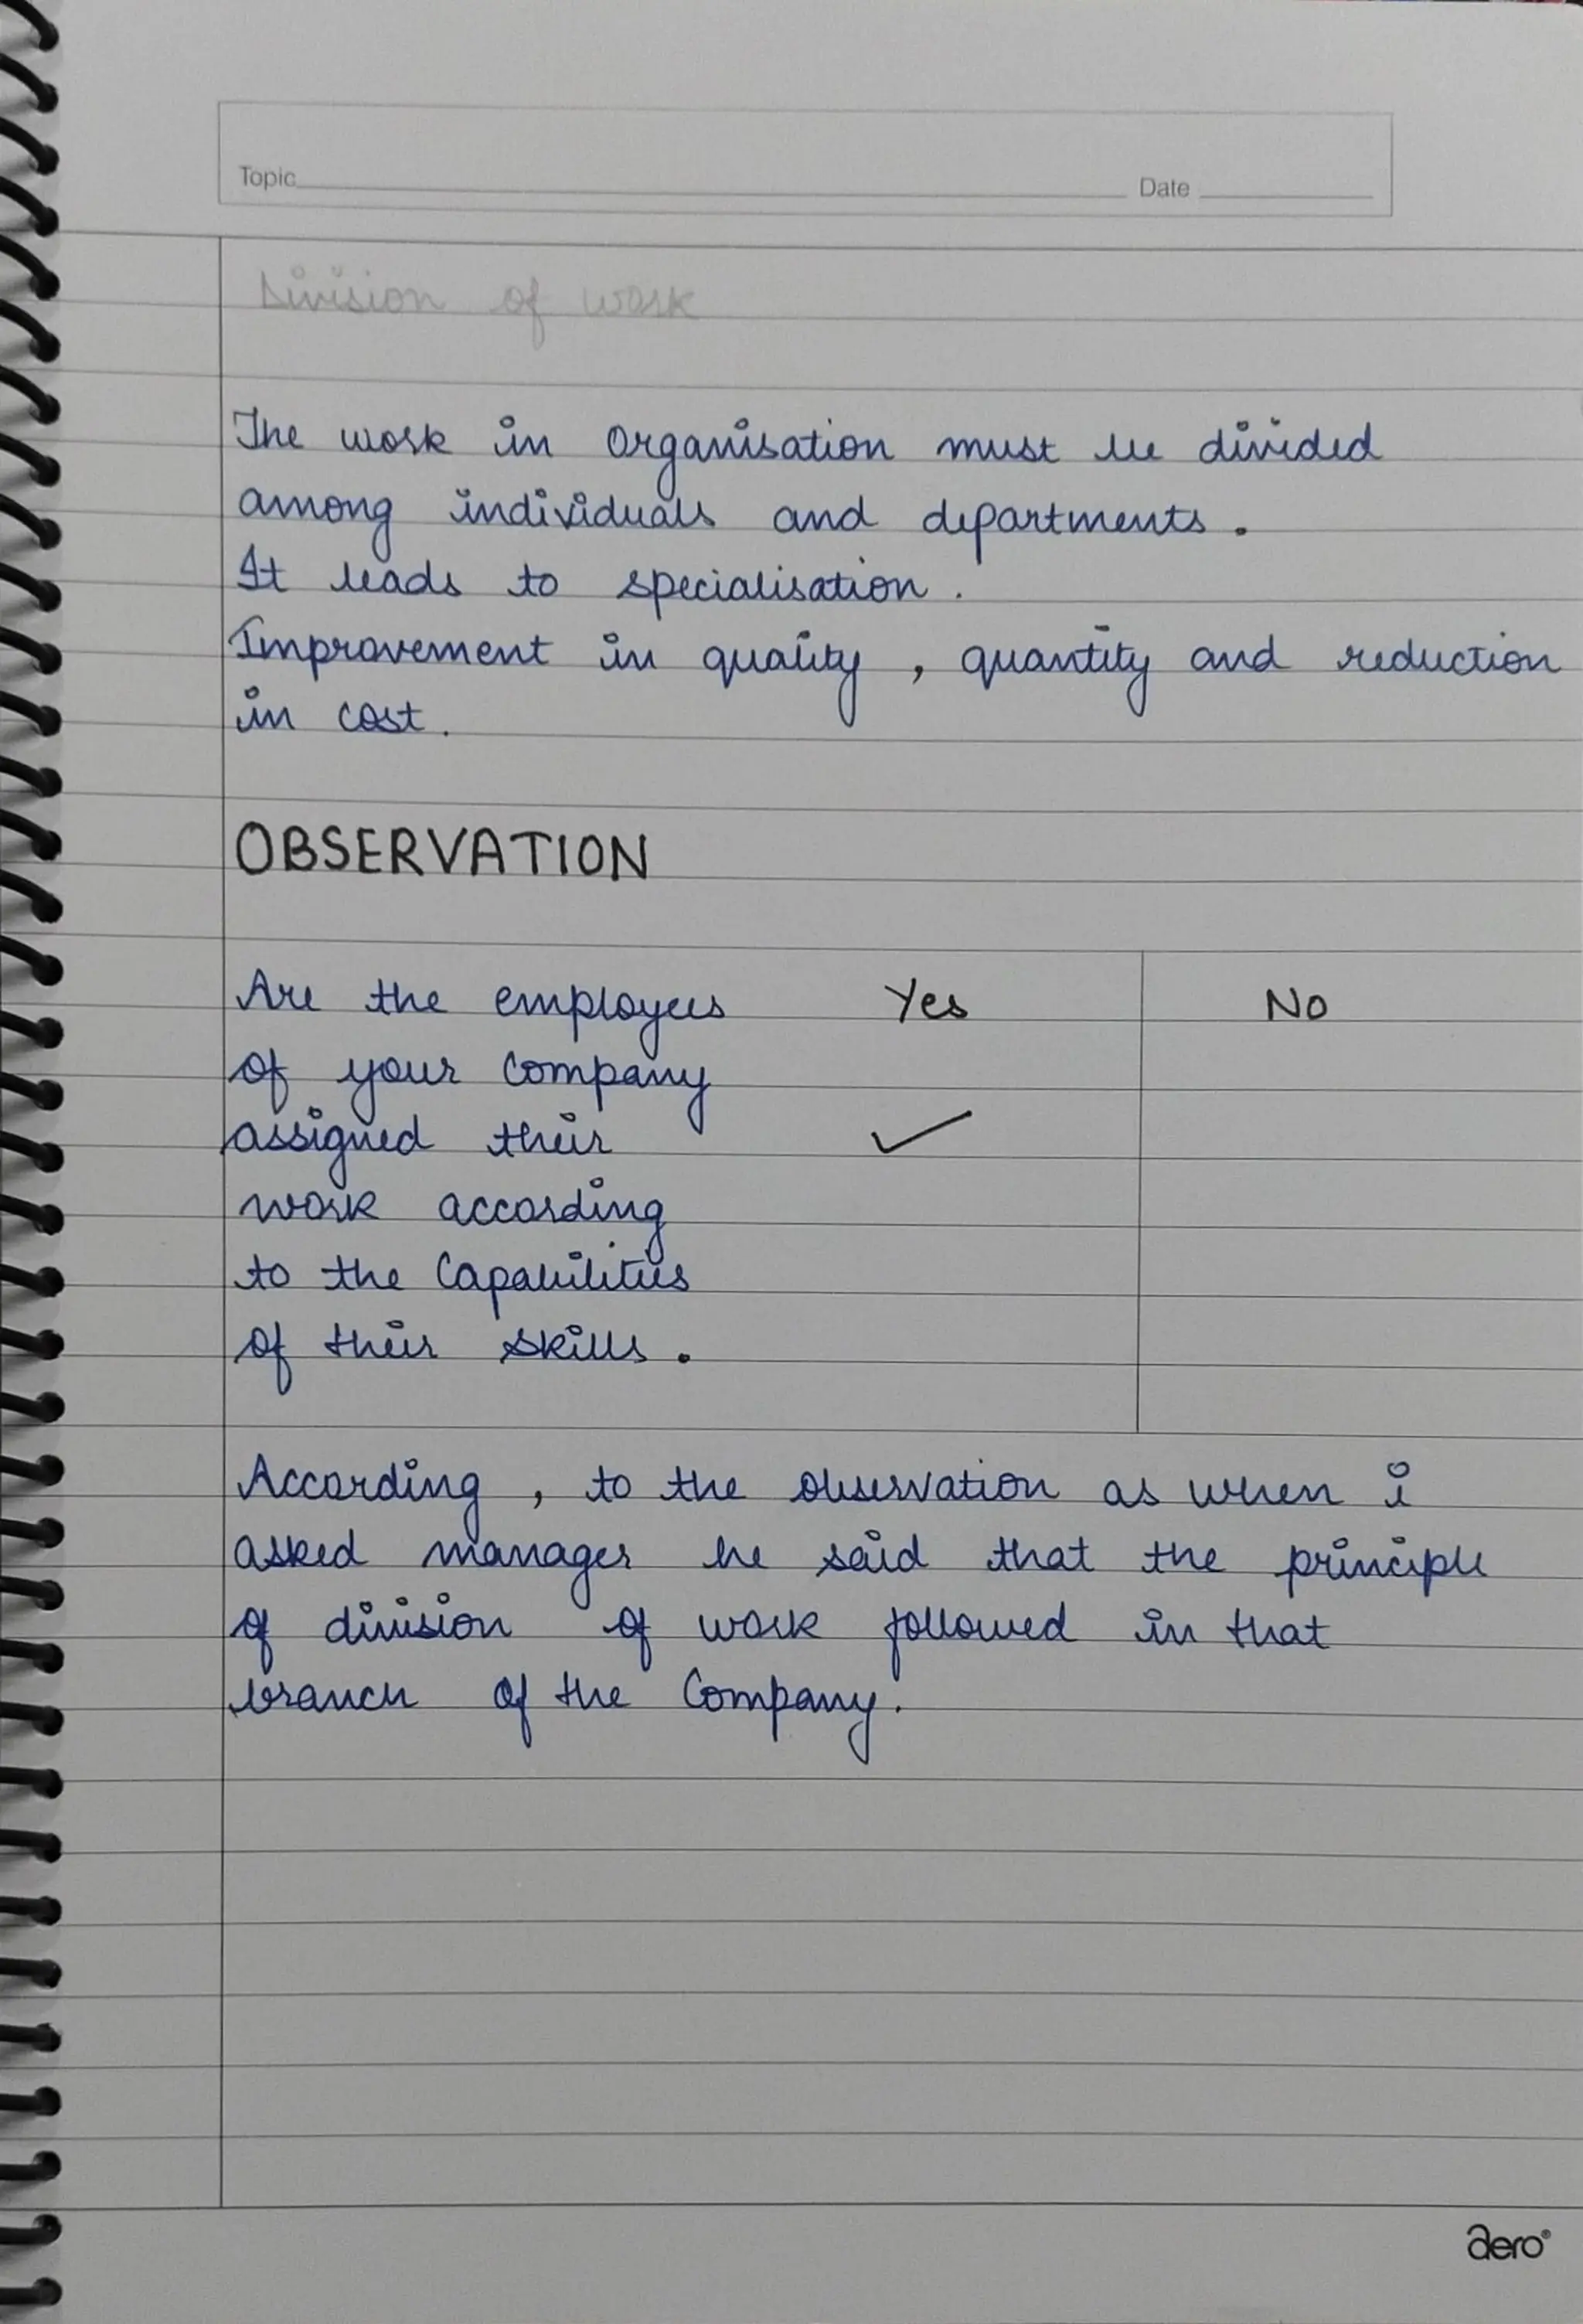 Topic Date
Division of work
The work in Organisation must be divided
among individuals and departments.
It leads to specialisation.
Improvement in quality, quantity and reduction
in cost.
OBSERVATION
Are the employees Yes No
of your Company
assigned their ✓
work according
to the Capabilities
of their skills.
According, to the observation as when i
asked manager he said that the principle
of division of work followed in that
branch of the Company.
aero®